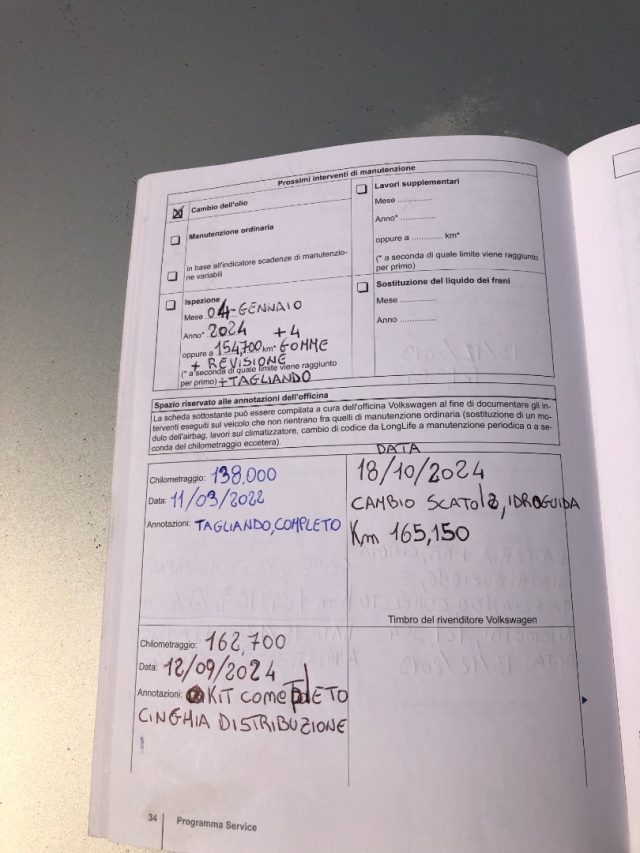 Prossimi interventi di manutenzione
Cambio dell'olio
Manutenzione ordinaria
in base all'indicatore scadenze di manutenzio-
ne variabili
Ispezione
Mese 04-GENNAIO
Anno* 2024 +4
oppure a 154,700 km* GOMME
+ REVISIONE
(* a seconda di quale limite viene raggiunto
per primo) +TAGLIANDO
Lavori supplementari
Mese ..............
Anno* ..............
oppure a ............ km*
(* a seconda di quale limite viene raggiunto
per primo)
Sostituzione del liquido dei freni
Mese ..............
Anno ..............
Spazio riservato alle annotazioni dell'officina
La scheda sottostante può essere compilata a cura dell'officina Volkswagen al fine di documentare gli in-
terventi eseguiti sul veicolo che non rientrano fra quelli di manutenzione ordinaria (sostituzione di un mo-
dulo dell'airbag, lavori sul climatizzatore, cambio di codice da LongLife a manutenzione periodica o a se-
conda del chilometraggio eccetera).
Chilometraggio: 138.000
Data: 11/03/2022
Annotazioni: TAGLIANDO, COMPLETO
DATA
18/10/2024
CAMBIO SCATOLA, IDROGUIDA
Km 165,150
Timbro del rivenditore Volkswagen
Chilometraggio: 162,700
Data: 12/09/2024
Annotazioni: KIT COMPLETO
CINGHIA DISTRIBUZIONE
34
Programma Service